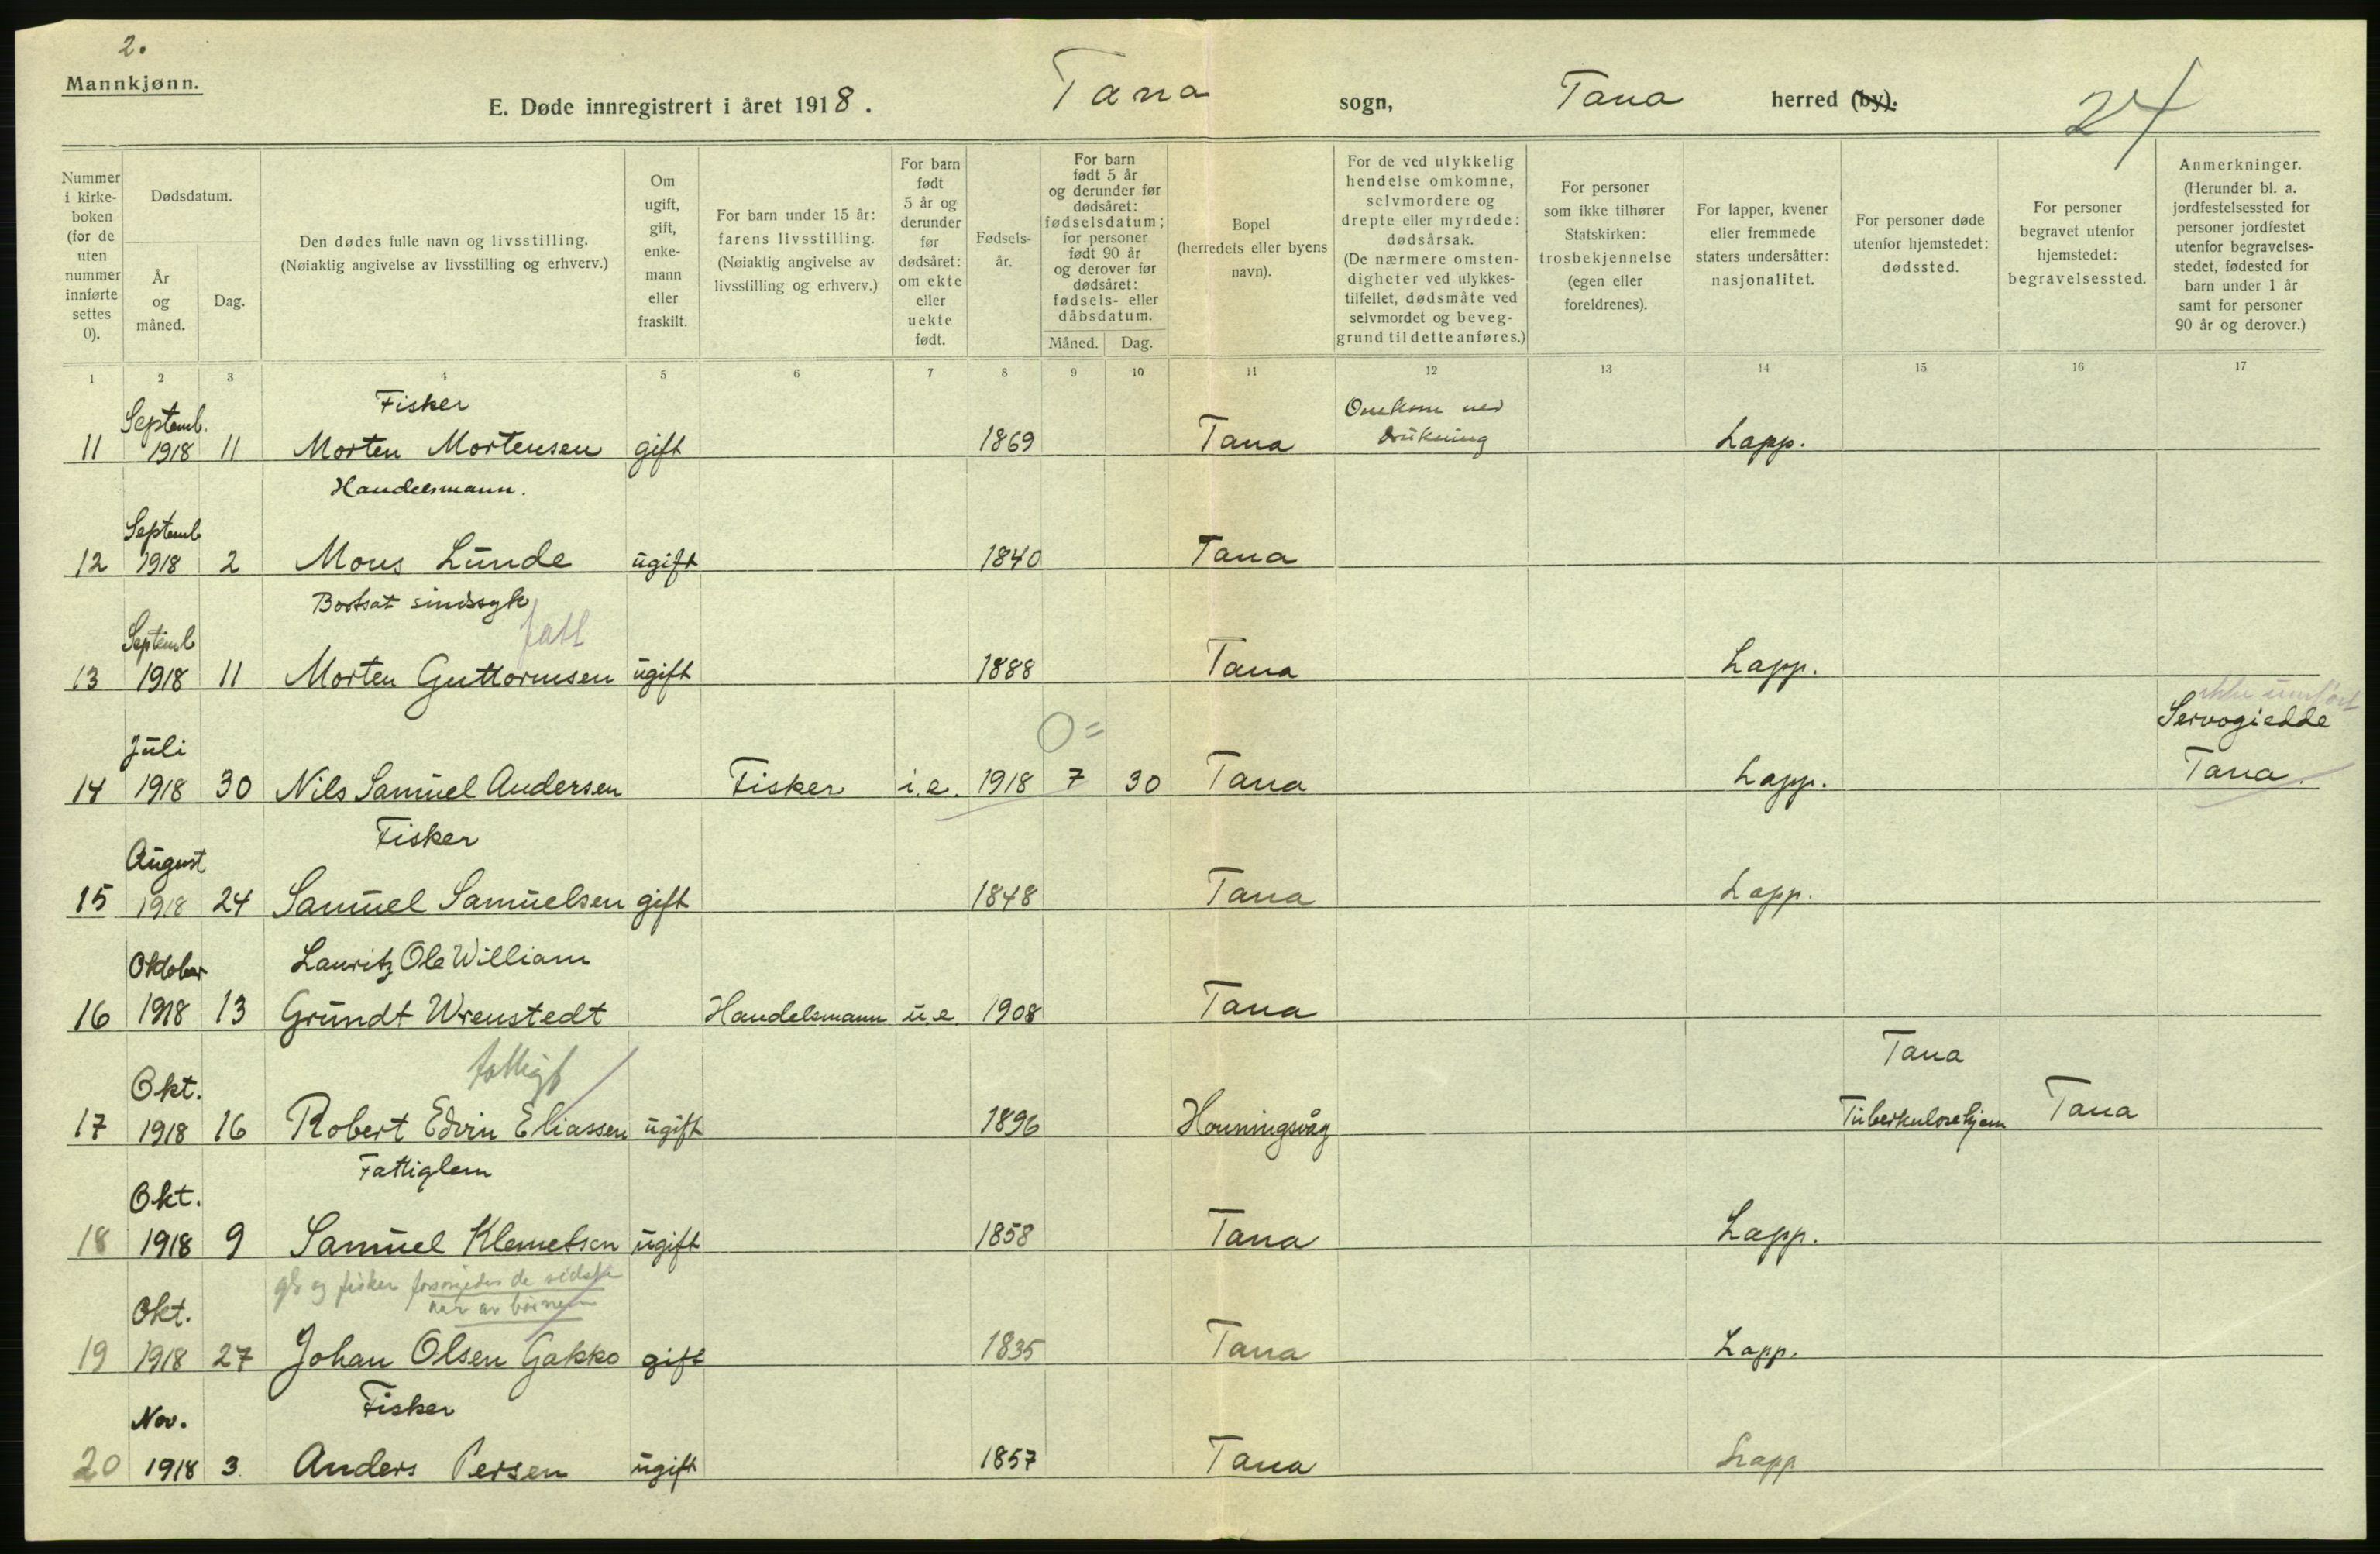 2.
Mannkjønn.
E. Døde innregistrert i året 1918. Tana sogn, Tana herred (by). 24
Nummer i kirkeboken (for de uten nummer innførte settes 0).
Dødsdatum.
År og måned.
Dag.
Den dødes fulle navn og livsstilling.
(Nøiaktig angivelse av livsstilling og erhverv.)
Om ugift, gift, enkemann eller fraskilt.
For barn under 15 år: farens livsstilling.
(Nøiaktig angivelse av livsstilling og erhverv.)
For barn født 5 år og derunder før dødsåret: om ekte eller uekte født.
Fødselsår.
For barn født 5 år og derunder før dødsåret: fødselsdatum; for personer født 90 år og derover før dødsåret: fødsels- eller dåbsdatum.
Måned. Dag.
Bopel (herredets eller byens navn).
For de ved ulykkelig hendelse omkomne, selvmordere og drepte eller myrdede: dødsårsak.
(De nærmere omstendigheter ved ulykkestilfellet, dødsmåte ved selvmordet og beveggrund til dette anføres.)
For personer som ikke tilhører Statskirken: trosbekjennelse (egen eller foreldrenes).
For lapper, kvener eller fremmede staters undersåtter: nasjonalitet.
For personer døde utenfor hjemstedet: dødssted.
For personer begravet utenfor hjemstedet: begravelsessted.
Anmerkninger.
(Herunder bl. a. jordfestelsessted for personer jordfestet utenfor begravelsesstedet, fødested for barn under 1 år samt for personer 90 år og derover.)
1 2 3 4 5 6 7 8 9 10 11 12 13 14 15 16 17
Septemb. Fisker Omkom ved
11 1918 11 Morten Mortensen gift 1869 Tana drukning Lapp.
Handelsmann.
Septemb
12 1918 2 Mons Lunde ugift 1840 Tana
Bortsat sindssyk
Septemb fatt
13 1918 11 Morten Guttormsen ugift 1888 Tana Lapp.
ikke
Juli 0= Servogiedde
14 1918 30 Nils Samuel Andersen Fisker i.e. 1918 7 30 Tana Lapp. Tana.
Fisker
August
15 1918 24 Samuel Samuelsen gift 1848 Tana Lapp.
Oktober Lauritz Ole William
16 1918 13 Grundt Wrenstedt Handelsmann u.e. 1908 Tana
Okt. fattigf Tana
17 1918 16 Robert Edvin Eliassen ugift 1896 Honningsvåg Tuberkulosehjem Tana
Fattiglem
Okt.
18 1918 9 Samuel Klemetsen ugift 1858 Tana Lapp.
og fisker forsørgedes de sidste
Okt. aar av børnene
19 1918 27 Johan Olsen Gakko gift 1835 Tana Lapp.
Nov. Fisker
20 1918 3 Anders Persen ugift 1857 Tana Lapp